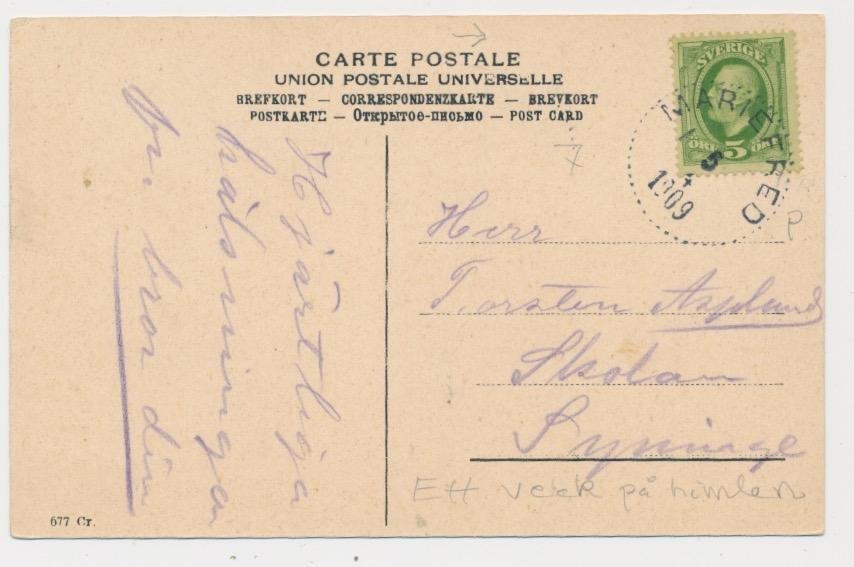 CARTE POSTALE
UNION POSTALE UNIVERSELLE
BREFKORT — CORRESPONDENZKARTE — BREVKORT
POSTKARTE — Открытое-письмо — POST CARD
SVERIGE
ÖRE 5 ÖRE
MARIEFRED
5
4
1909
Hjärtliga
hälsningar
bror din
Herr
Torsten Asplund
Skolan
Ett veck på himlen
677 Cr.